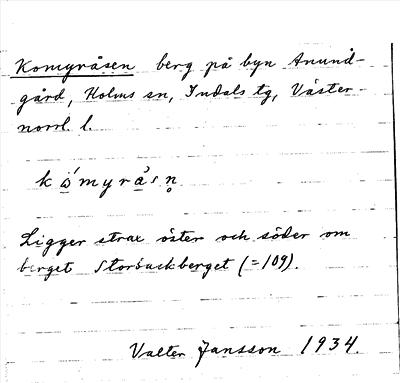 Komyråsen berg på byn Anund-
gård, Holms sn, Indals tg, Väster-
norrl. l.
k ώ m y r å̀ s n̥
Ligger strax öster och söder om
berget Storbuckberget (=109).
Valter Jansson 1934.